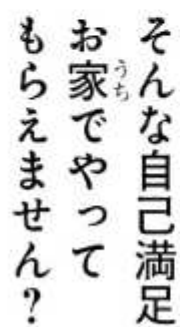 そんな自己満足
お家でやって
もらえません?